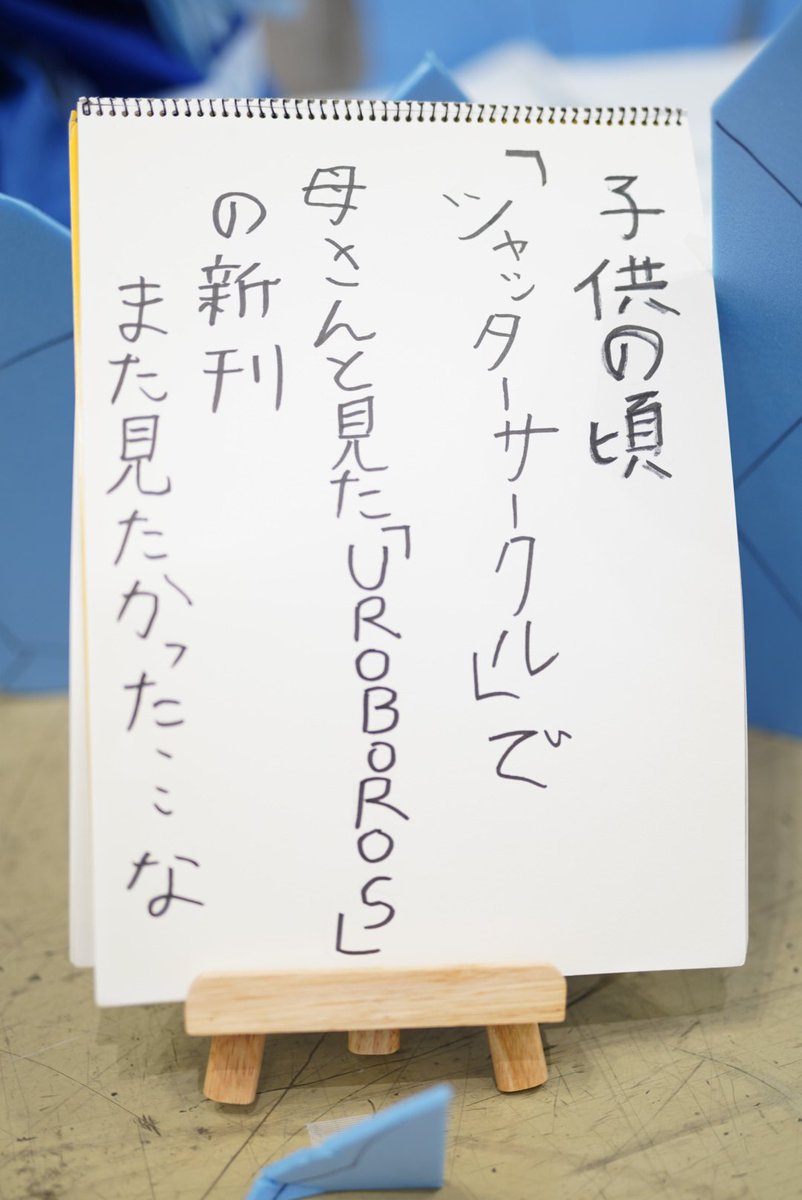 子供の頃
「シャッターサークル」で
母さんと見た「UROBOROS」
の新刊
また見たかった…な